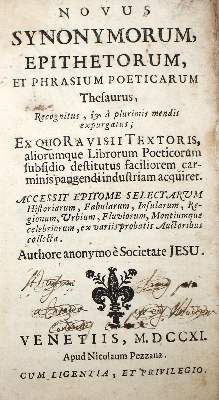 NOVUS
SYNONYMORUM,
EPITHETORUM,
ET PHRASIUM POETICARUM
Thesaurus,
Recognitus, & à plurimis mendis
expurgatus;
EX QUO RAVISII TEXTORIS,
aliorumque Librorum Poeticorum
subsidio destitutus faciliorem car-
minis pangendi industriam acquiret.
ACCESSIT EPITOME SELECTARUM
Historiarum, Fabularum, Insularum, Re-
gionum, Urbium, Fluviorum, Montiumque
celebriorum, ex variis probatis Auctoribus
collecta.
Authore anonymo è Societate JESU.
VENETIIS, M.DCCXI.
Apud Nicolaum Pezzana.
CUM LICENTIA, ET PRIVILEGIO.